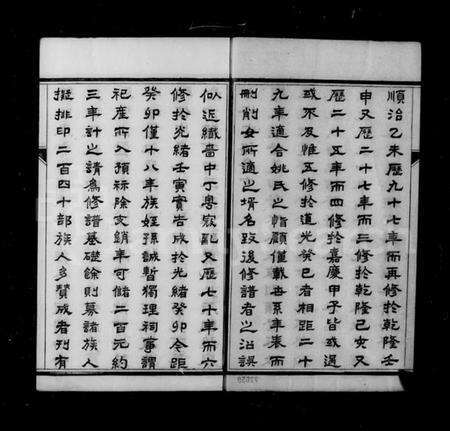 順治乙未歷九十七年而再修於乾隆壬
申又歷二十七年而三修於乾隆己亥又
歷二十五年而四修於嘉慶甲子皆或過
或不及惟五修於道光癸巳者相距二十
九年適合姚氏之恉顧僅載世系年表而
刪削女所適之壻名致後修譜者之沿誤
似近纎嗇中丁粵寇亂又歷七十年而六
修於光緒壬寅實告成於光緒癸卯今距
癸卯僅十八年族姪孫誠暫獨理祠事謂
祀產所入預祘除支銷年可儲二百元約
三年計之請為修譜基礎餘則募諸族人
擬排印二百四十部族人多贊成者列有